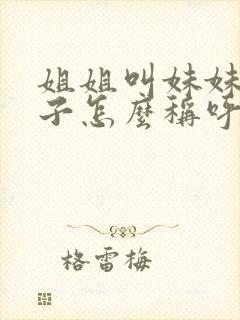 姐姐叫妹妹
子怎麼稱呼
格雷梅